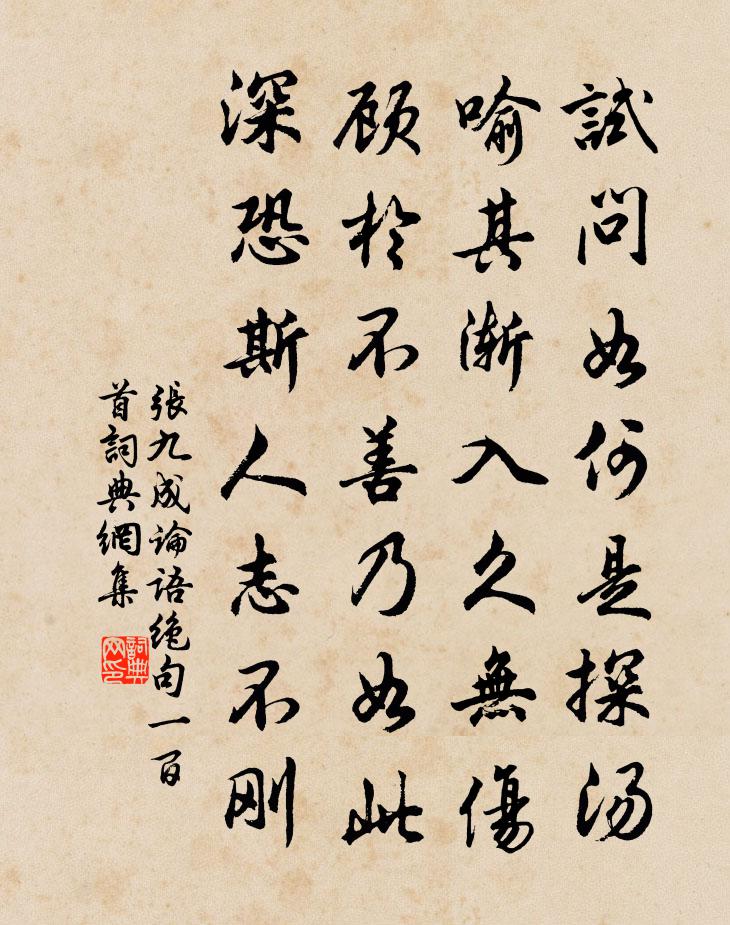 試問如何是探湯
喻其漸入久無傷
顧於不善乃如此
深恐斯人志不剛
張九成論語絶句一百
首詞典網集
詞典
网印